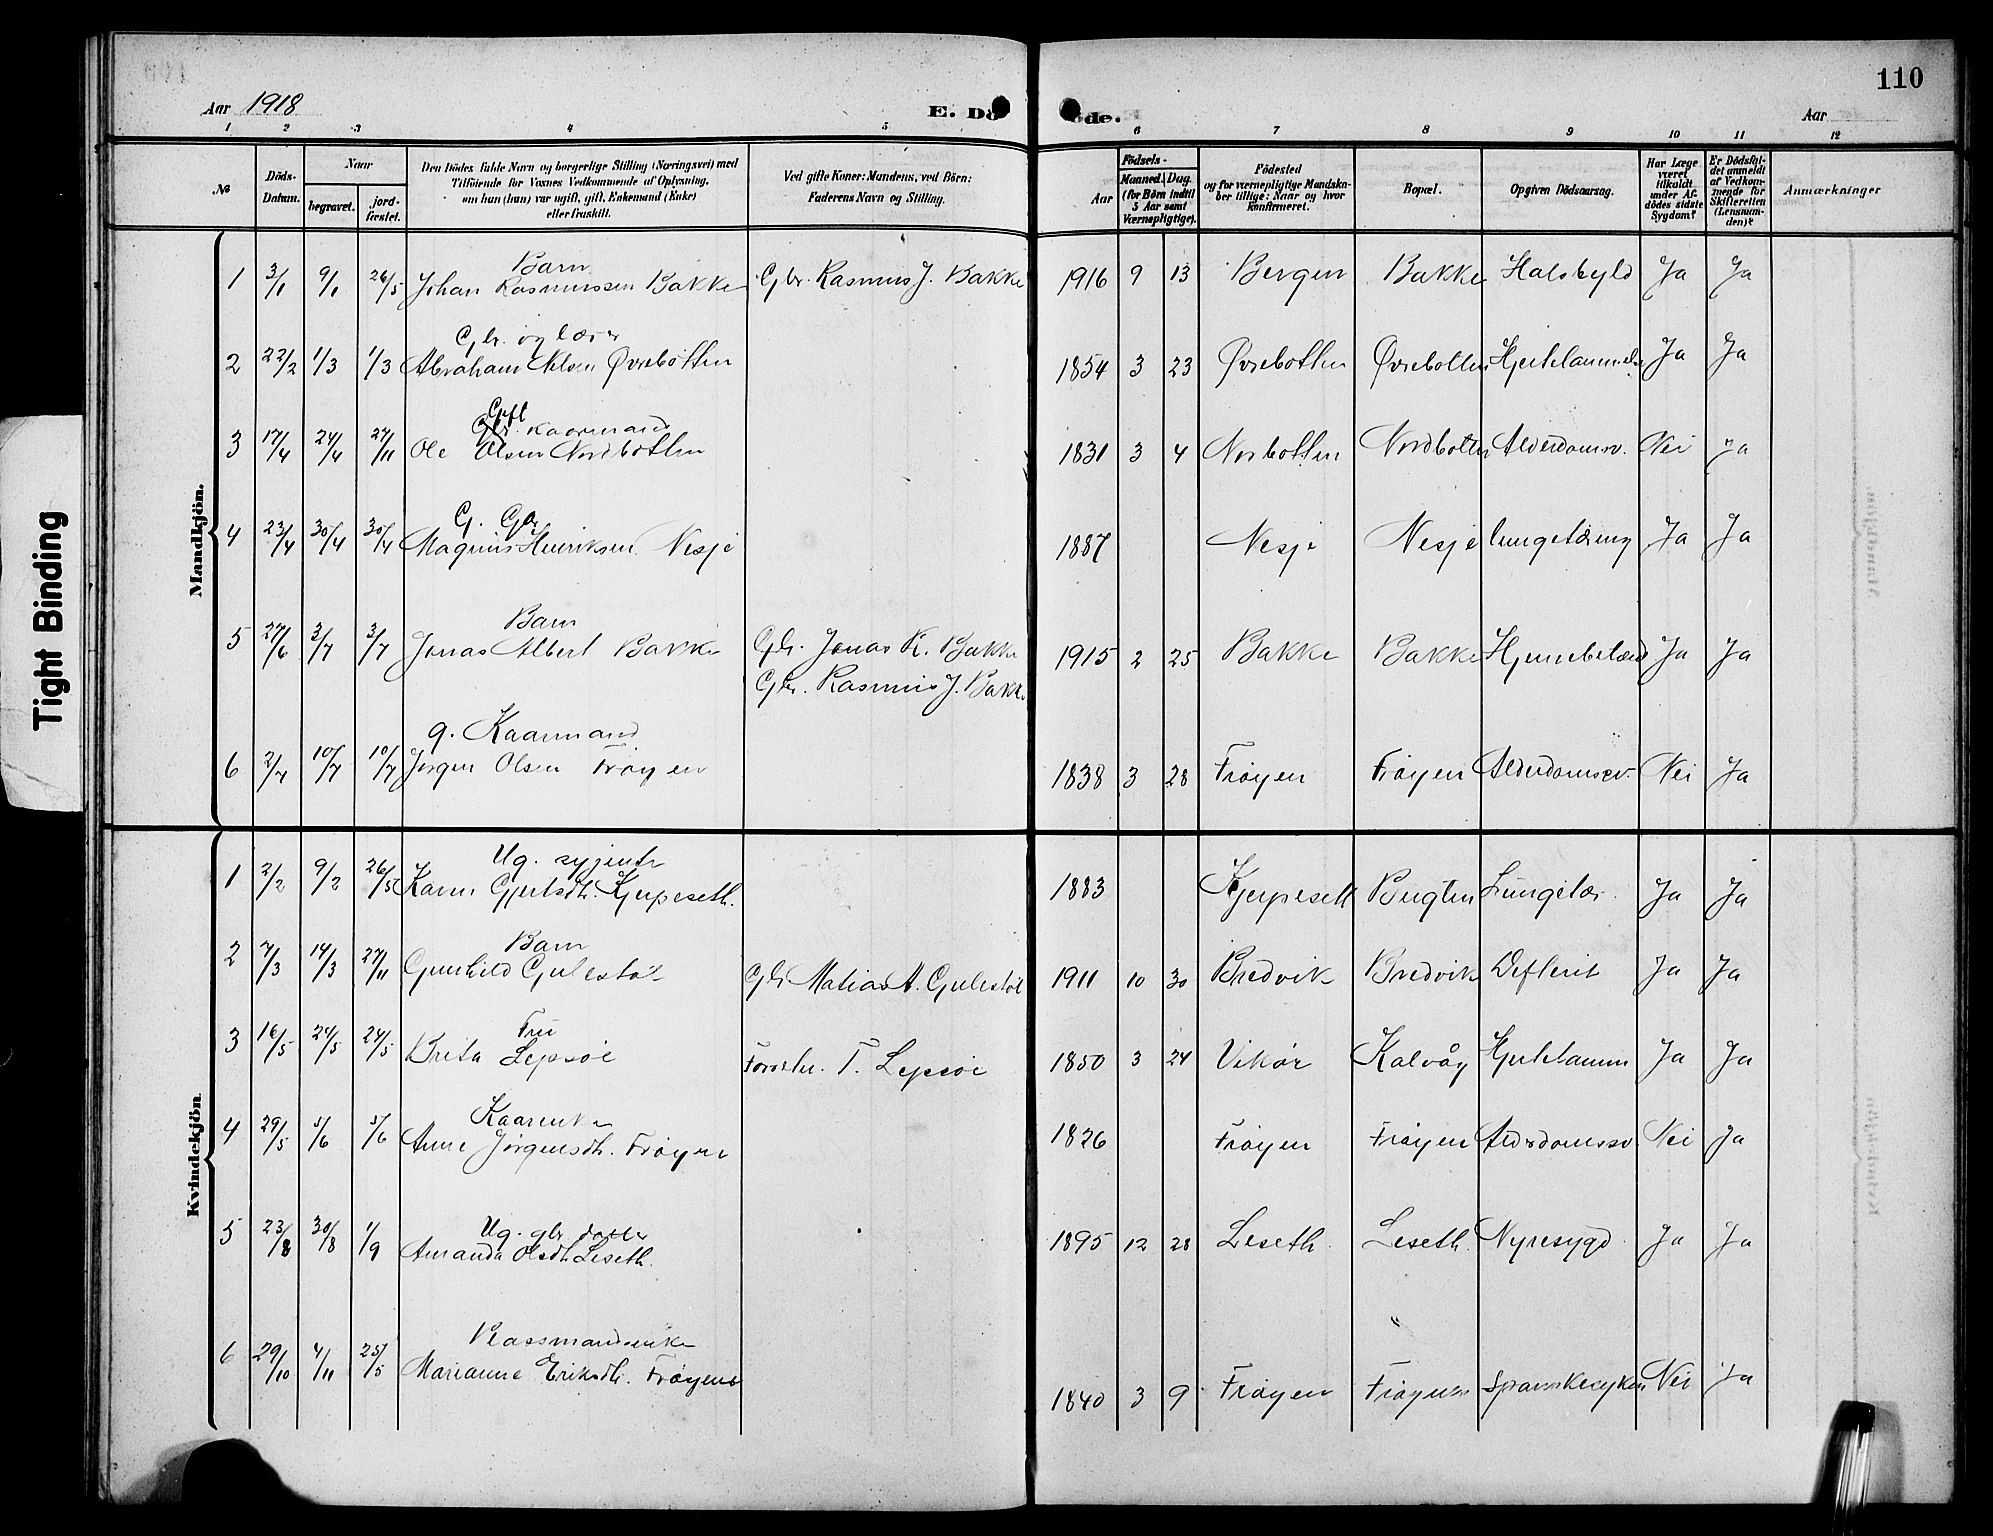 110
Aar 1918
E. Dø
øde.
Aar
1 2 3 4 5 6 7 8 9 10 11 12
№
Døds-Datum.
Naar
begravet.
jord-fæstet.
Den Dødes fulde Navn og borgerlige Stilling (Næringsvei) med
Tilføiende for Voxnes Vedkommende af Oplysning,
om han (hun) var ugift, gift, Enkemand (Enke)
eller fraskilt.
Ved gifte Koner: Mandens, ved Børn:
Faderens Navn og Stilling.
Aar
Fødsels-
Maaned. Dag.
(for Børn indtil
5 Aar samt
Værnepligtige).
Fødested
og for værnepligtige Mandska-
ber tillige: Naar og hvor
konfirmeret.
Bopæl.
Opgiven Dødsaarsag.
Har Læge
været
tilkaldt
under Af-
dødes sidste
Sygdom?
Er Dødsfal-
det anmeldt
af Vedkom-
mende for
Skifteretten
(Lensman-
den)?
Anmærkninger
Tight Binding
Mandkjön.
Barn
1 3/1 9/1 26/5 Johan Rasmussen Bakke Gbr. Rasmus J. Bakke 1916 9 13 Bergen Bakke Halsbyld Ja Ja
Gbr. og lærer
2 22/2 1/3 1/3 Abraham Nelsen Øvrebotten 1854 3 23 Øvrebotten Øvrebotten Hjertelammelse Ja Ja
Gift
Gbr. kaarmand
3 17/4 24/4 27/11 Ole Olsen Nordbotten 1831 3 4 Norbotten Nordbotten Alderdomsv. Nei Ja
G. Gbr
4 23/4 30/4 30/4 Magnus Henriksen Nesje 1887 Nesje Nesje Lungetæring Ja Ja
Barn
5 27/6 3/7 3/7 Jonas Albert Bakke Gbr. Jonas R. Bakke 1915 2 25 Bakke Bakke Hjernebetænd Ja Ja
Gbr. Rasmus J. Bakke
g. Kaarmand
6 2/7 10/7 10/7 Jørgen Olsen Frøyen 1838 3 28 Frøyen Frøyen Alderdomssv. Nei Ja
Kvindekjön
Ug. syjente
1 2/2 9/2 26/5 Karen Gjertsdt. Kjerpeseth. 1883 Kjerpeseth Bugten Lungetær. Ja Ja
Barn
2 7/3 14/3 27/11 Gunhild Gulestøl Gbr Matias A. Gulestøl 1911 10 30 Bredvik Bredvik Defterit Ja Ja
Fru
3 16/5 24/5 24/5 Brita Lepsøe T. Lepsøe 1850 3 24 Vikør Kalvåg Hjertelamm Ja Ja
Kaarenke
4 29/5 5/6 5/6 Anne Jørgensdt. Frøyen 1826 Frøyen Frøyen Alderdomssv Nei Ja
Ug. gbr datter
5 23/8 30/8 1/9 Amanda Olsdt Leseth. 1895 12 28 Leseth. Leseth. Nyresygd Ja Ja
Plassmandsenke "
6 29/10 4/11 25/5 Marianne Eriksdt. Frøyen 1840 3 9 Frøyen Frøyen spanskesyken Nei Ja